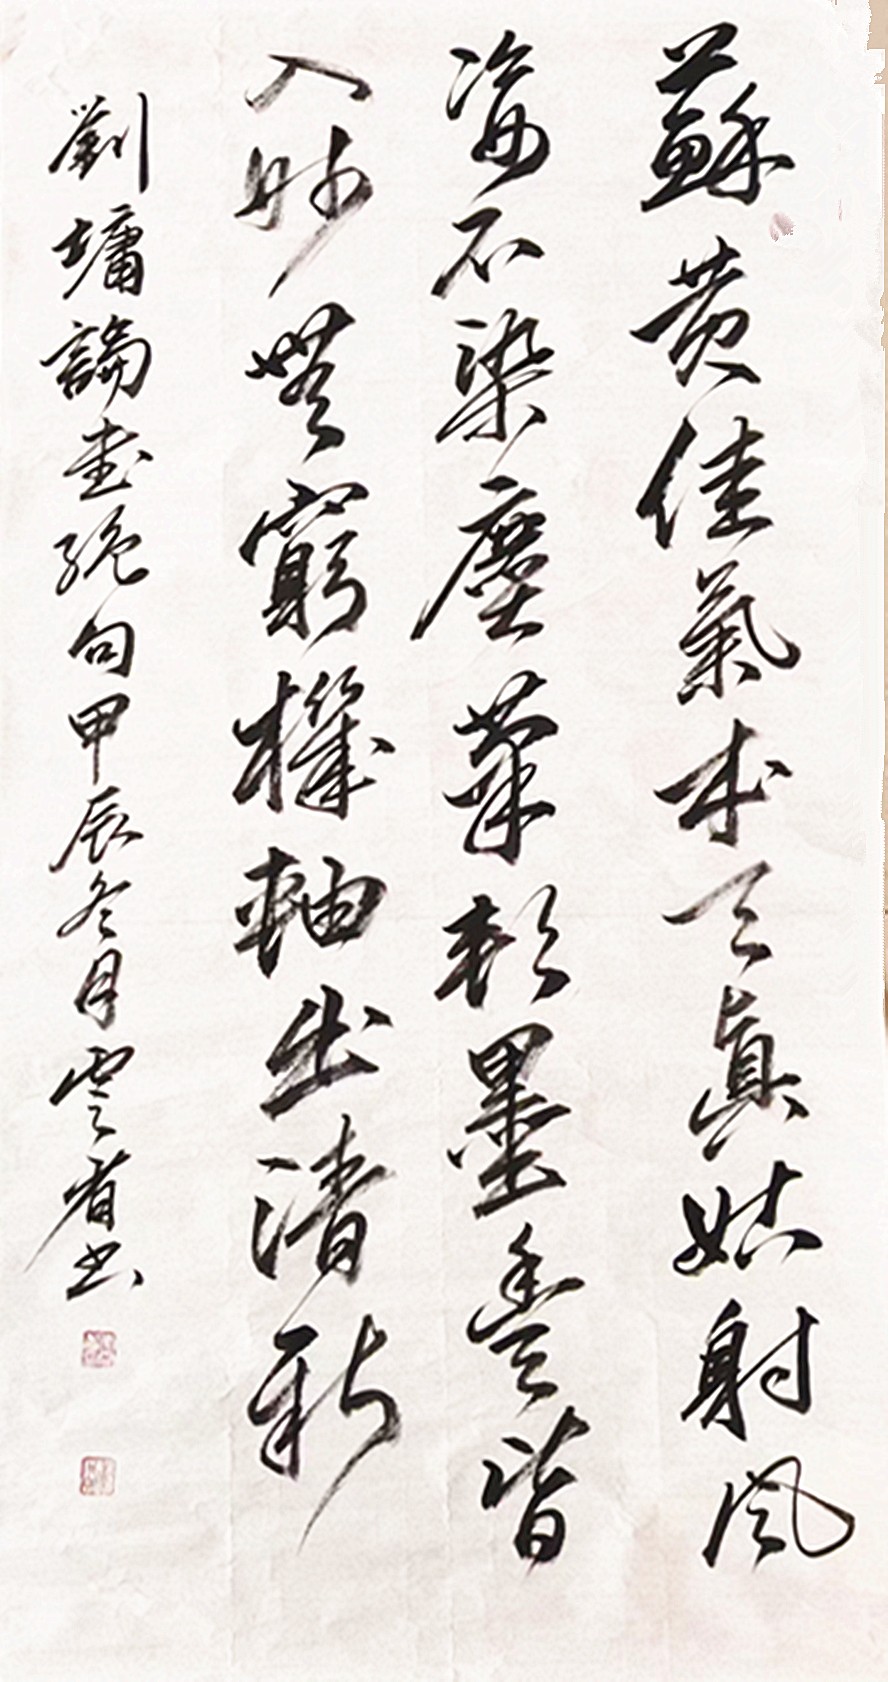 蘇黄佳氣本天真姑射風
姿不染塵筆軟墨豐皆
入妙無窮機軸出清新
劉墉論書絶句甲辰冬月雲省书